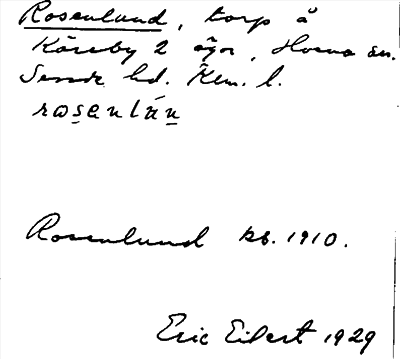 Rosenlund, torp å
Kåreby 2 ägor, Horns sn.
Sevede hd. Klm. l.
rosenlán
Rosenlund kb. 1910.
Eric Eilert 1929